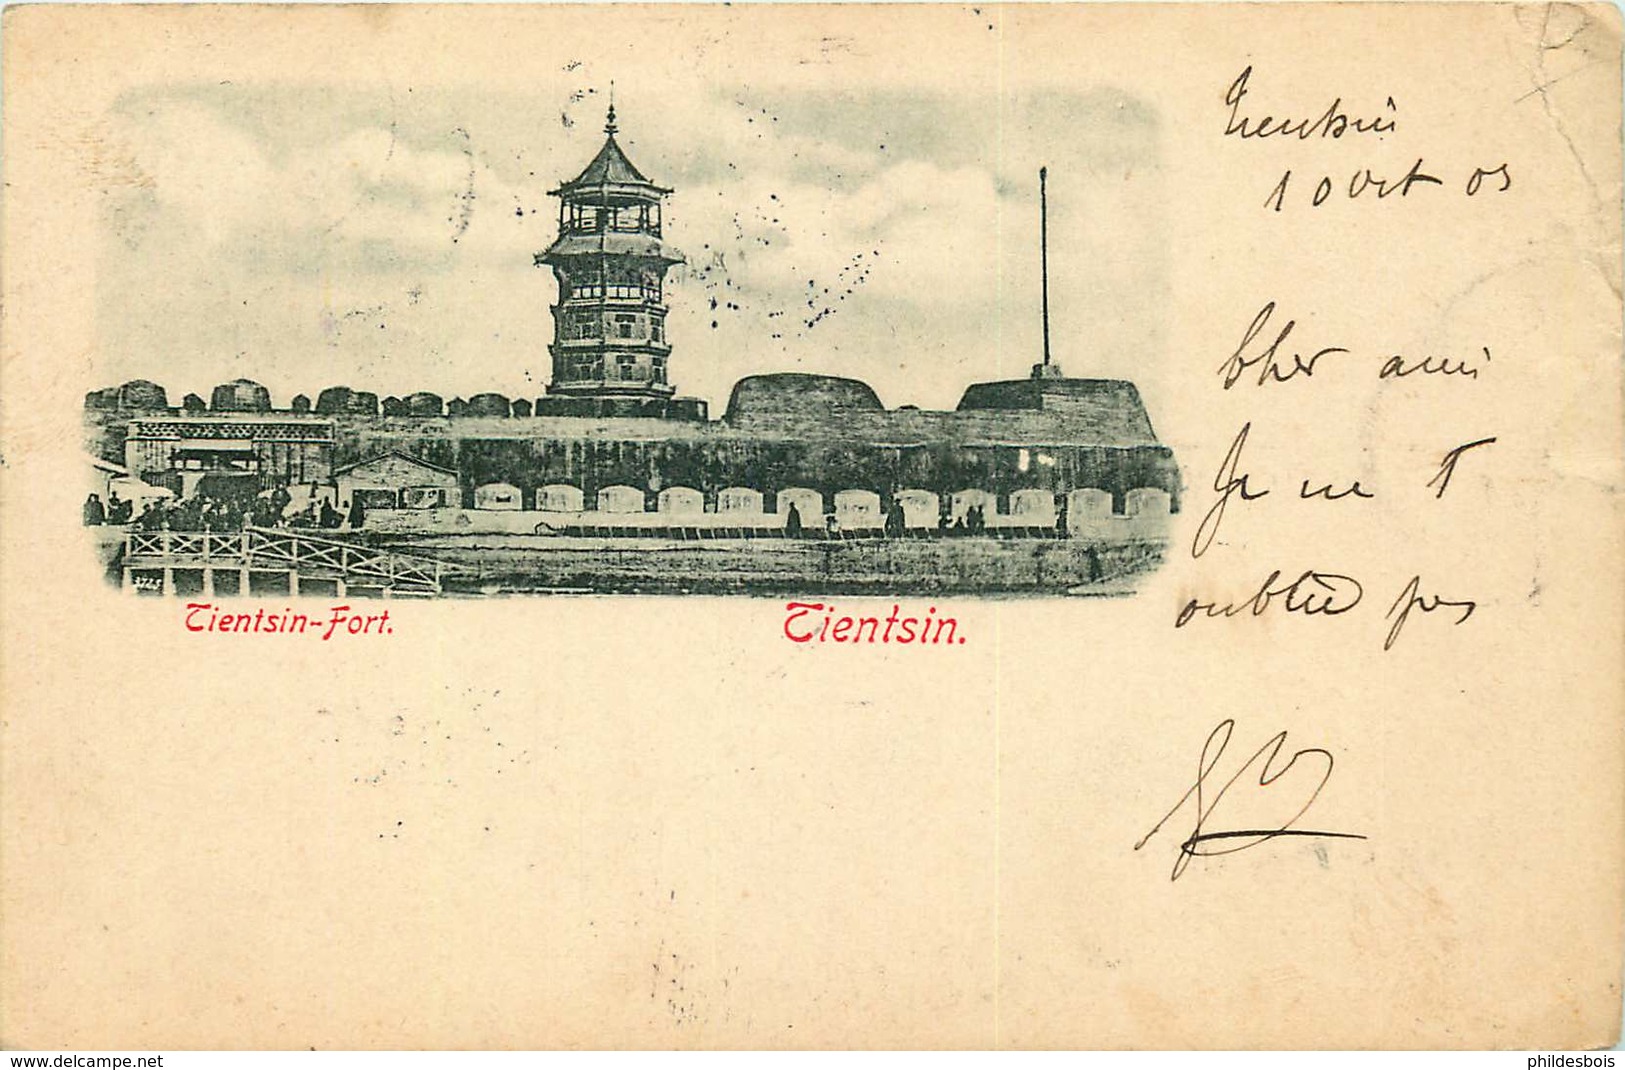 Tientsin
10 Oct 03
Cher ami
Je ne T
oublie pas
3725
Tientsin-Fort.
Tientsin.
www.delcampe.net
phildesbois